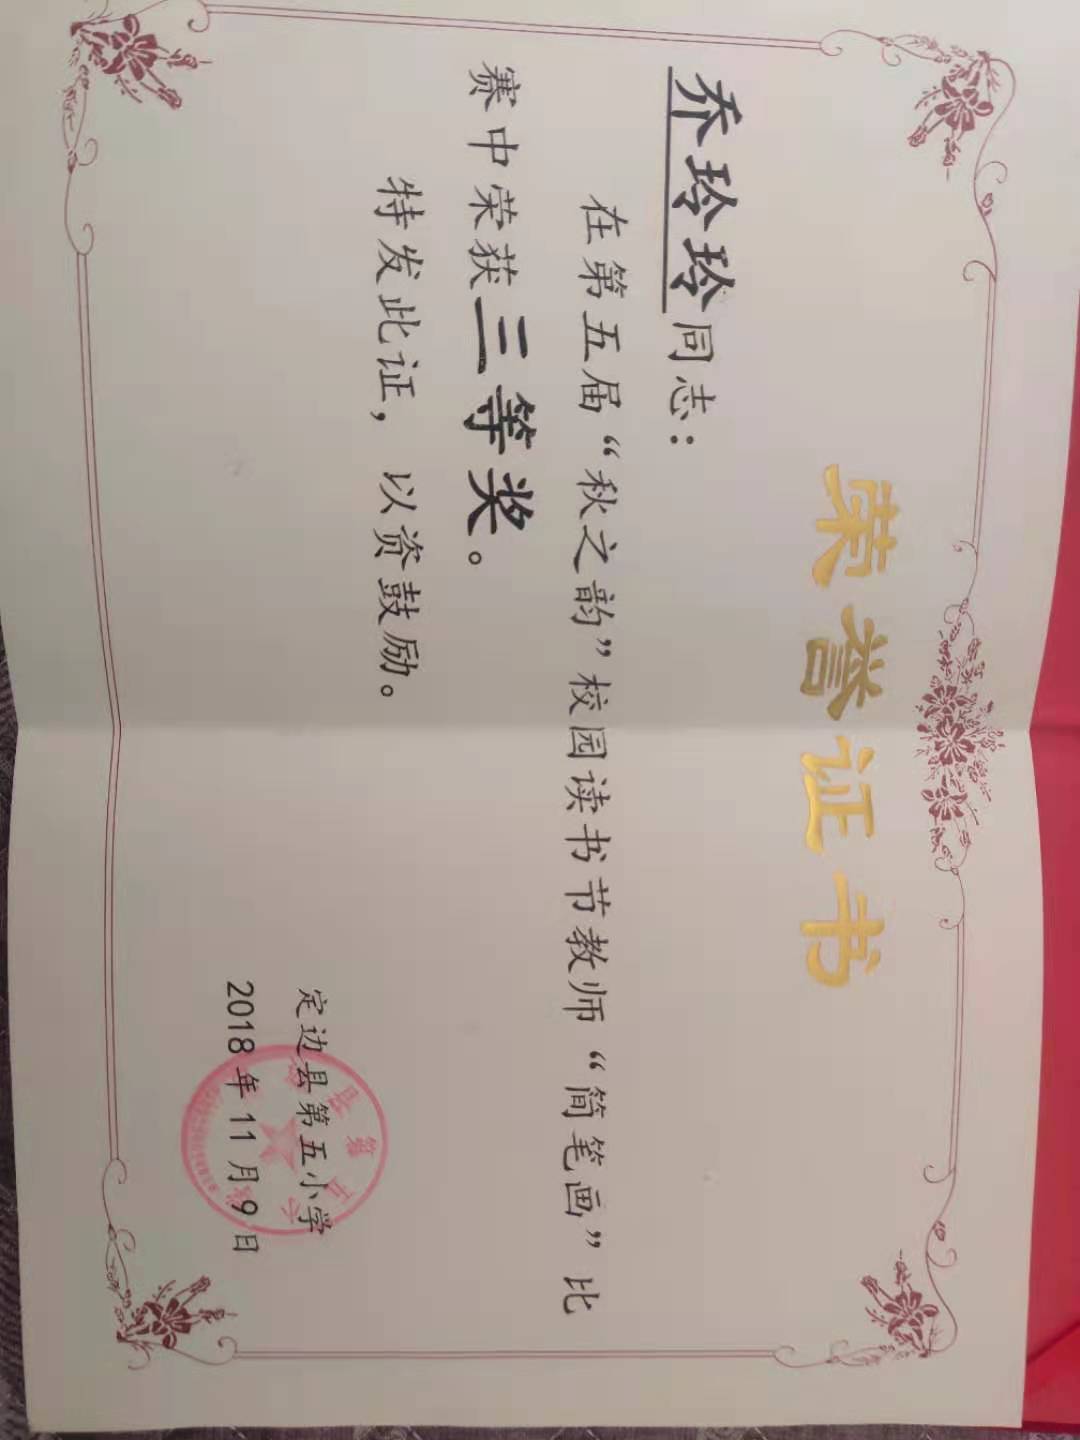 荣誉证书
乔玲玲同志：
在第五届“秋之韵”校园读书节教师“简笔画”比
赛中荣获三等奖。
特发此证，以资鼓励。
定边县第五小学
2018年11月9日